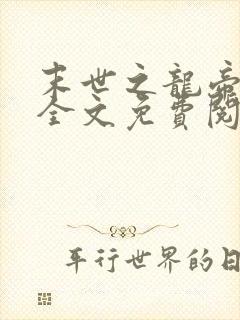 末世之龍帝
全文免費閱
平行世界的日